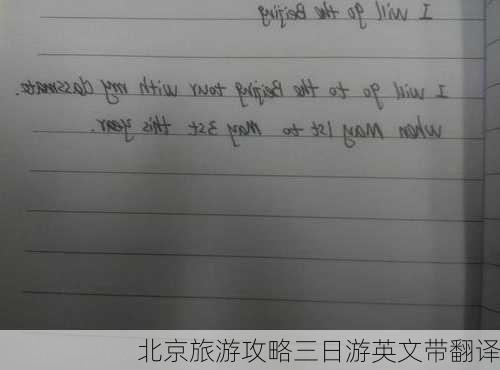 I will go the Beijing
I will go to the Beijing tour with my classmate.
when May 1st to May 3st this year.
北京旅游攻略三日游英文带翻译